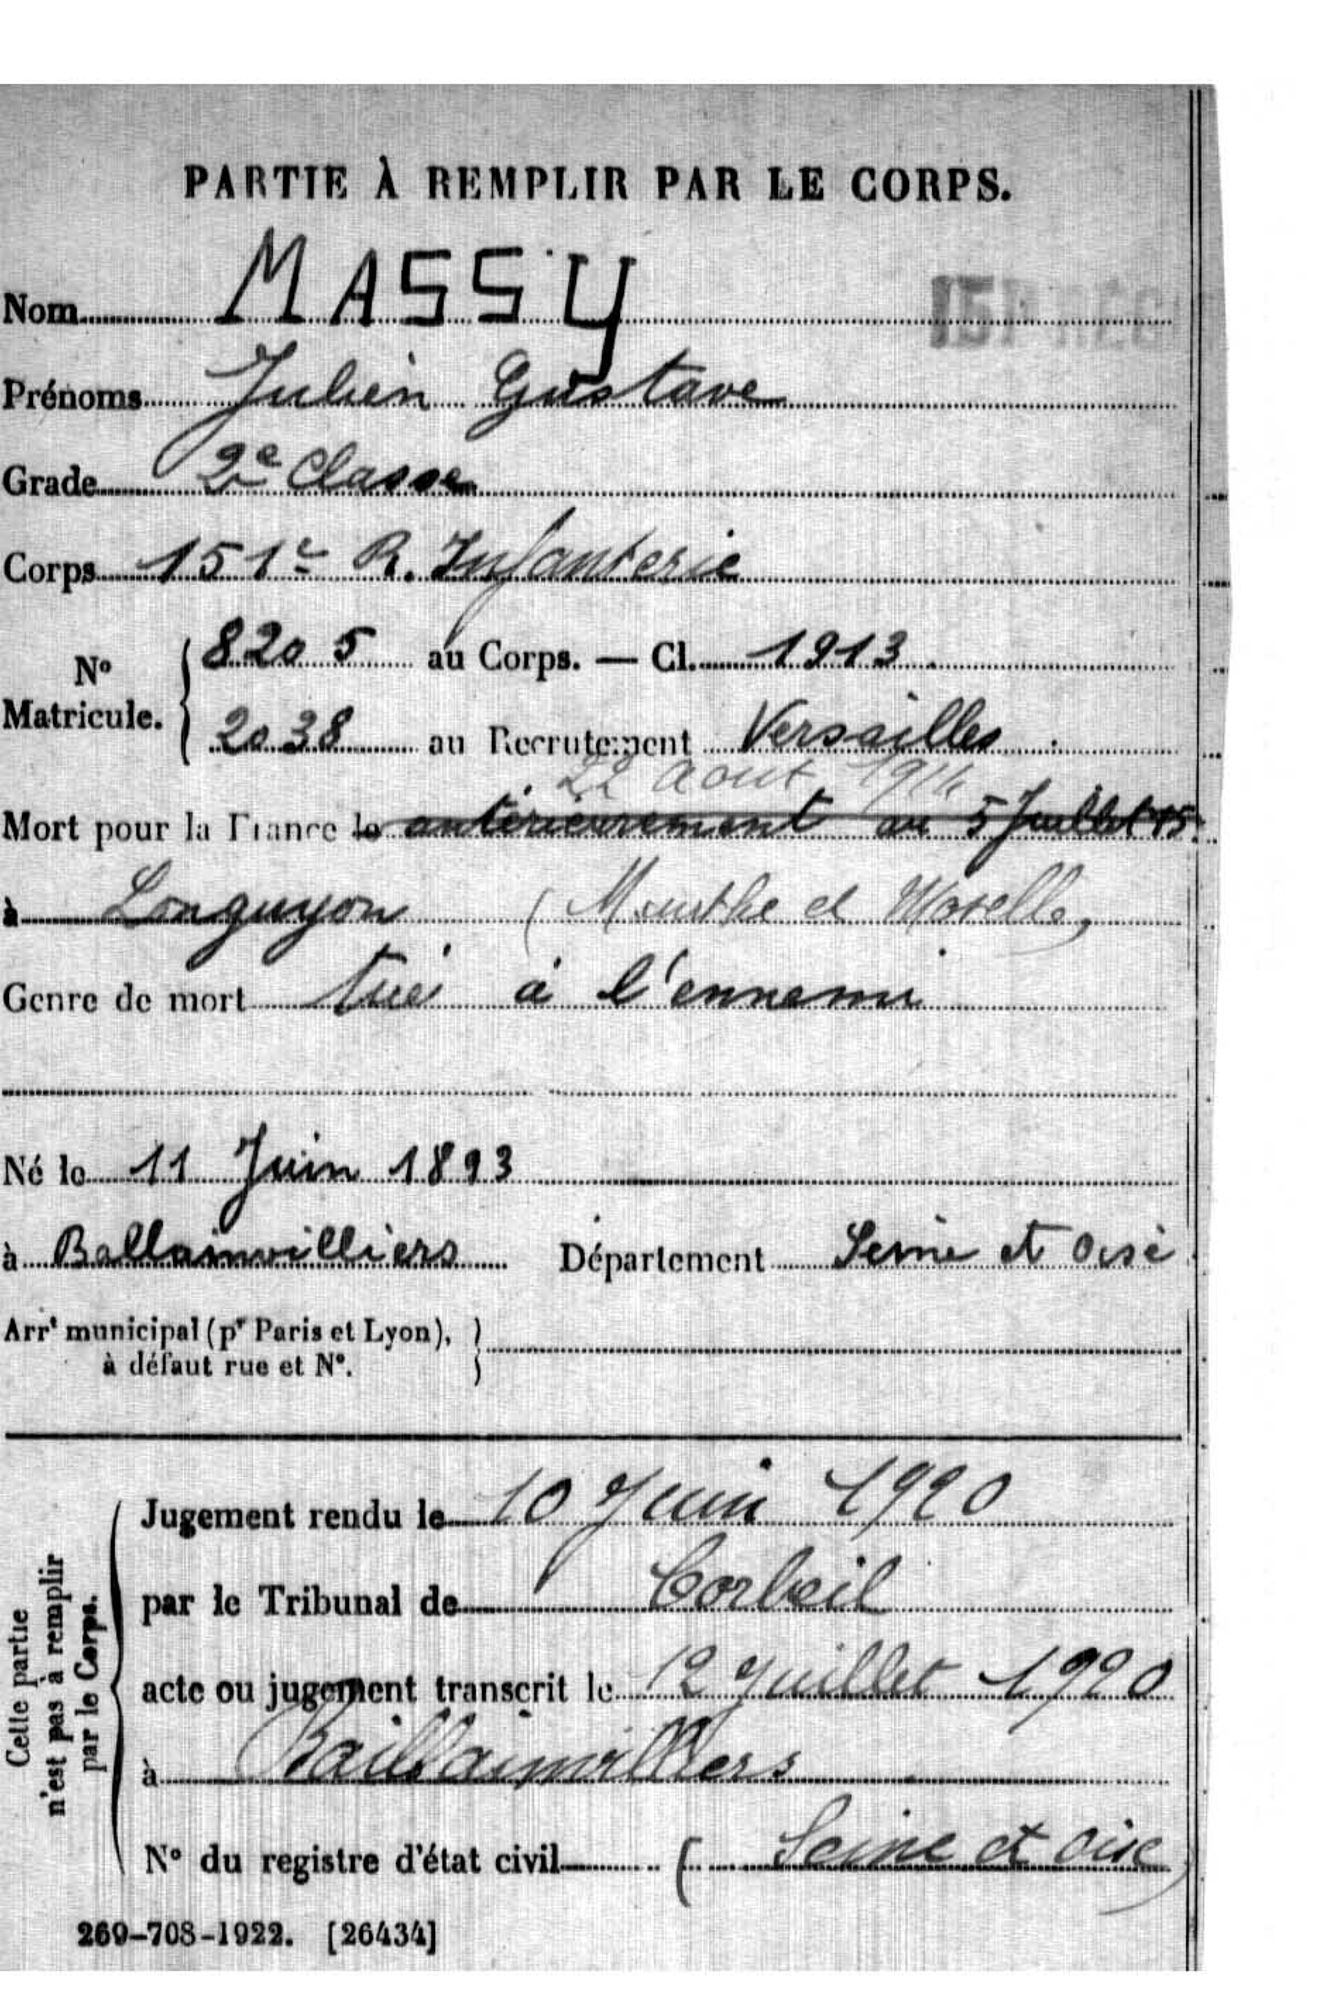 PARTIE À REMPLIR PAR LE CORPS.
Nom MASSY
151e REG
Prénoms Julien Gustave
Grade 2e Classe
Corps 151e R. Infanterie
No Matricule. { 8205 au Corps. — Cl. 1913
2038 au Recrutement Versailles
22 aout 1914
Mort pour la France le antérieurement au 5 Juillet 15
à Longuyon (Meurthe et Moselle)
Genre de mort tué à l'ennemi
Né le 11 Juin 1893
à Ballainvilliers Département Seine et Oise
Arrt municipal (pr Paris et Lyon), }
à défaut rue et N°.
Cette partie
n'est pas à remplir
par le Corps.
Jugement rendu le 10 Juin 1920
par le Tribunal de Corbeil
acte ou jugement transcrit le 12 Juillet 1920
à Baillainvilliers
N° du registre d'état civil (Seine et Oise)
269-708-1922. [26434]